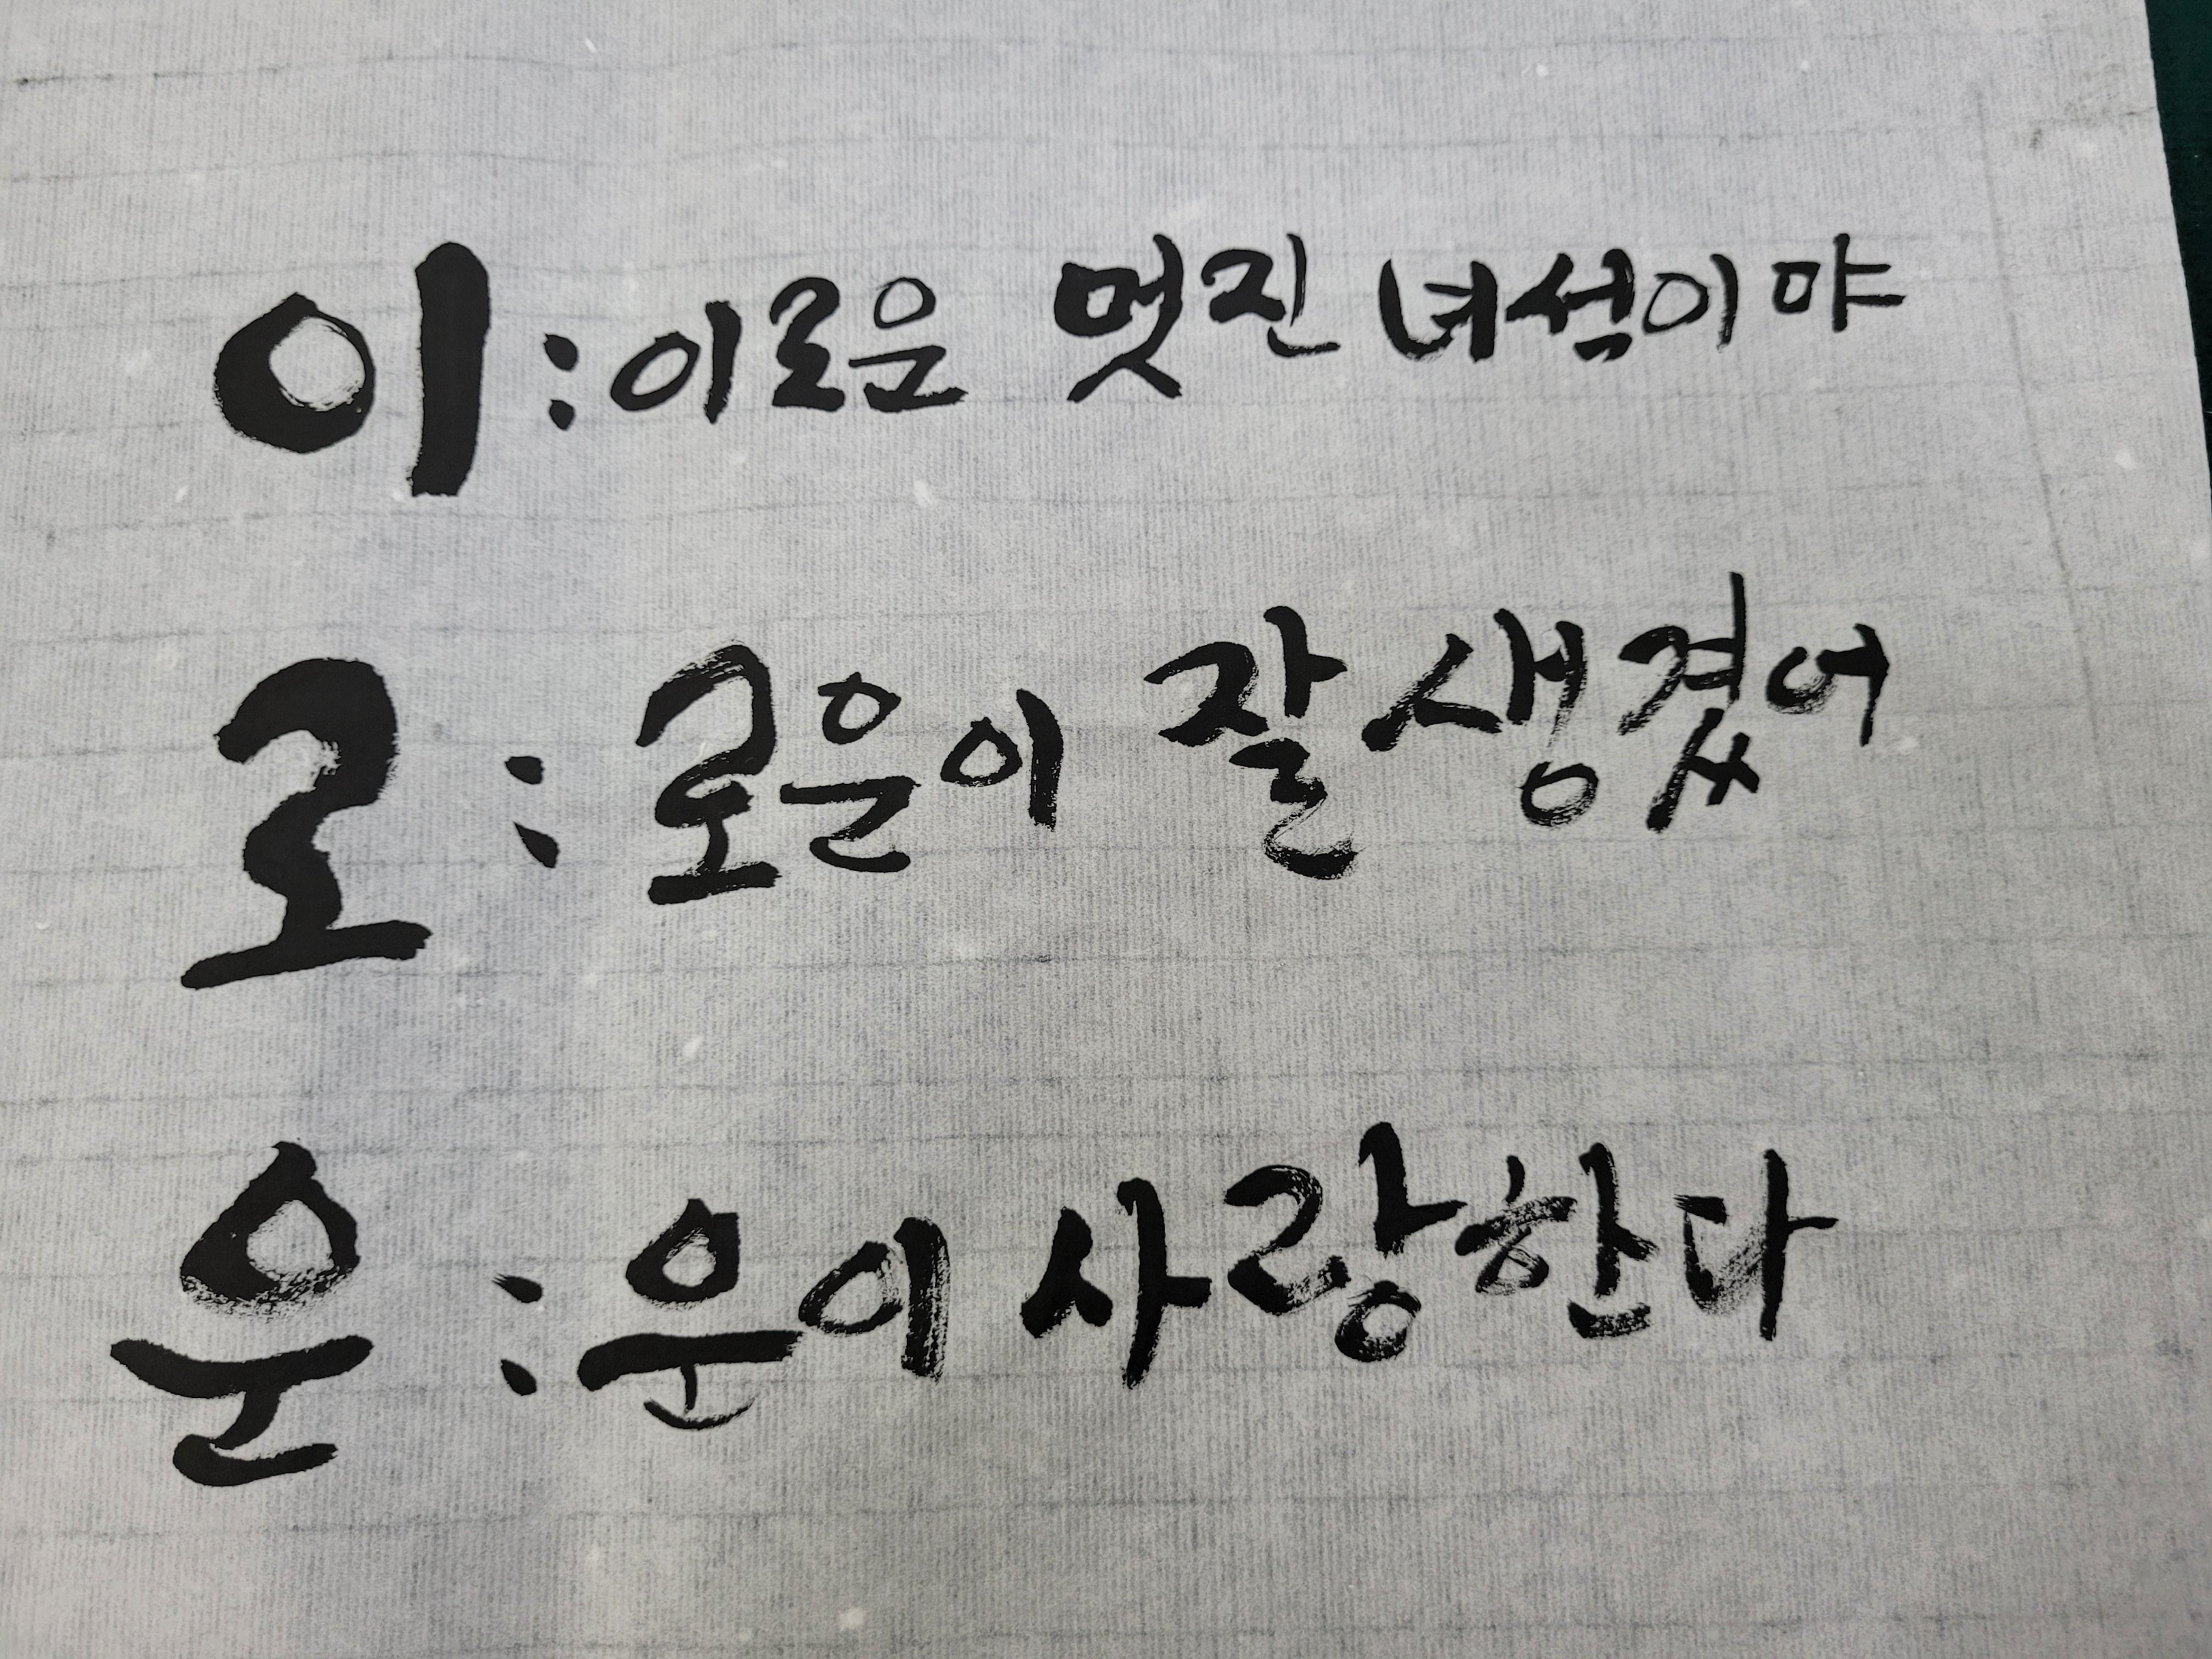 이 : 이로운 멋진 녀석이야
로 : 로운이 잘 생겼어
운 : 운이 사랑한다